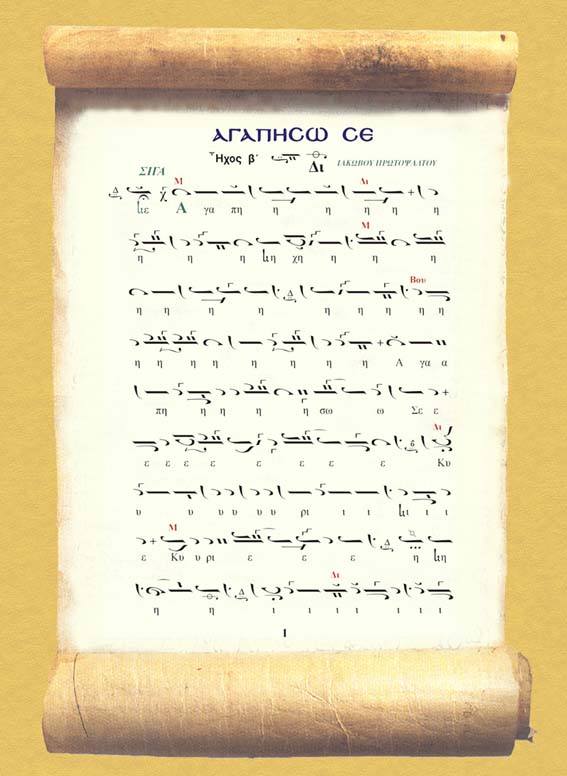 ΑΓΑΠΗCΩ CΕ
Ἦχος β΄ Δι ΙΑΚΩΒΟΥ ΠΡΩΤΟΨΑΛΤΟΥ
ΣΙΓΑ Μ Δι
με Α γα πη η η η η η
Μ
η η η μη χη η η η
Βου
η η η η η η η η
η η η η η η η η Α γα α
πη η η η η σω ω Σε ε
Δι
ε ε ε ε ε ε ε ε Κυ
υ υ υ υ υ υ ρι ι ι μι ι ι
Μ
ε Κυ υ ρι ε ε ε ε η μη
Δι
η η ι ι ι ι ι ι ι
1